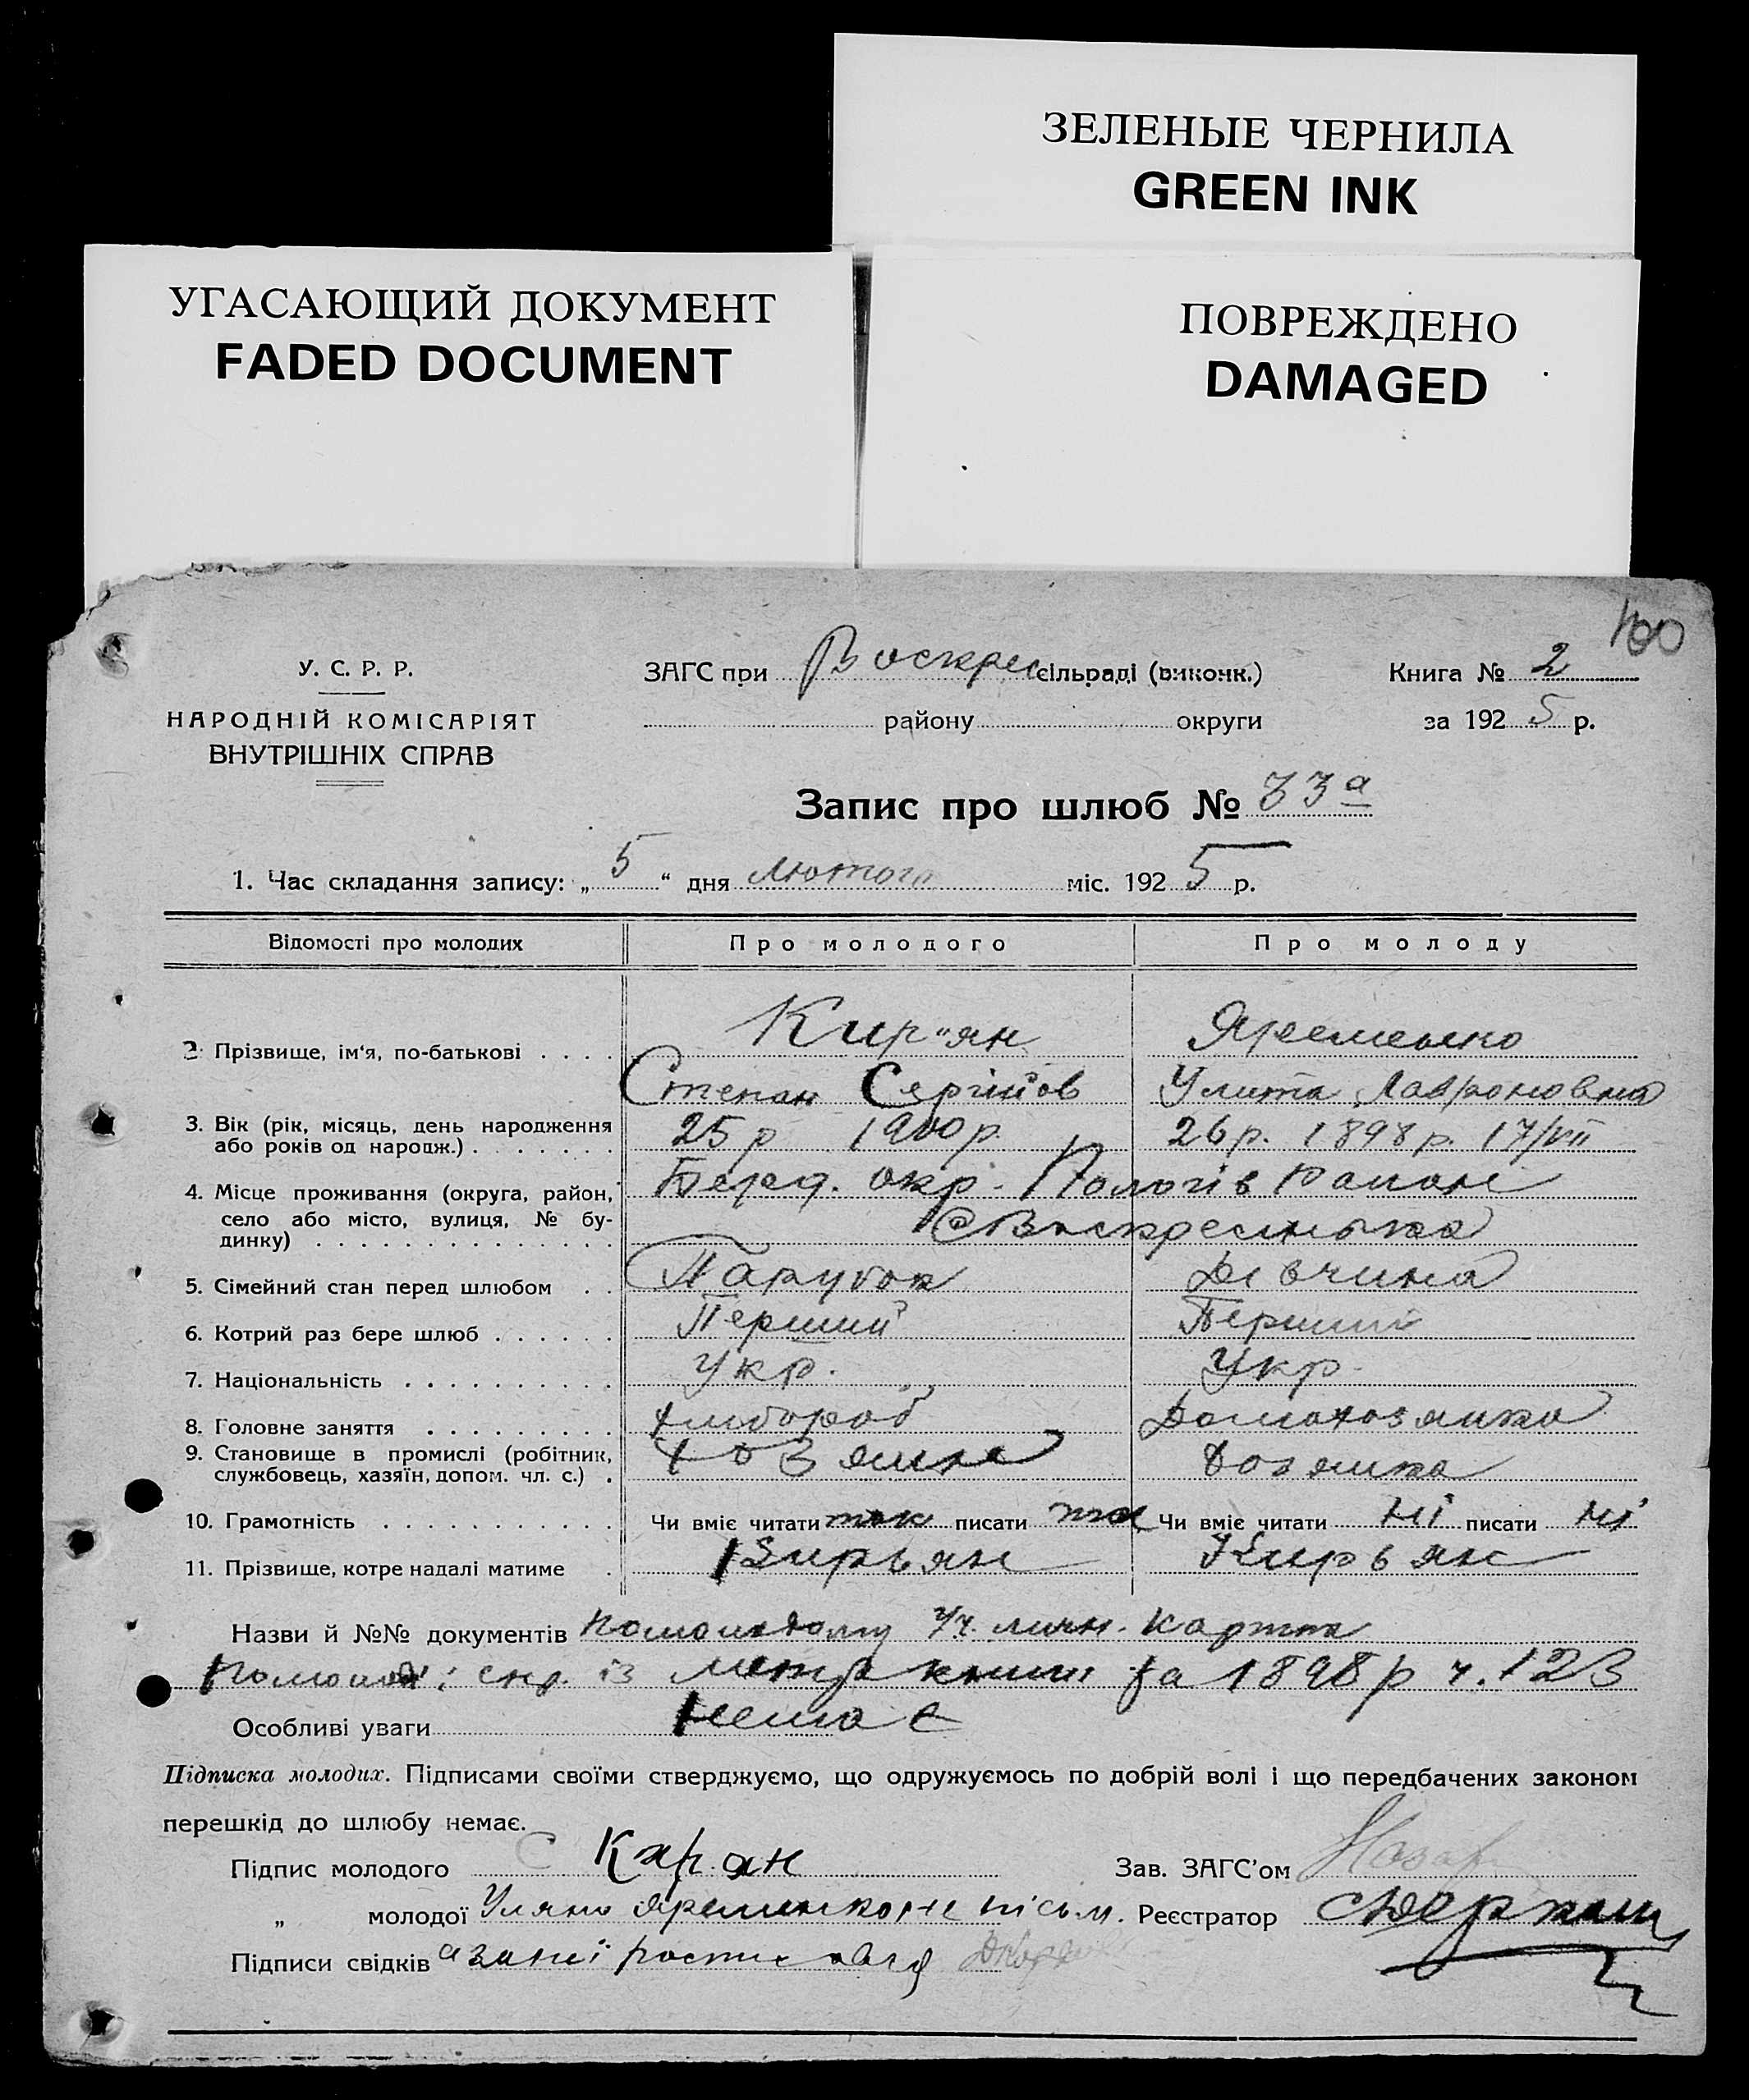 ЗЕЛЕНЫЕ ЧЕРНИЛА
GREEN INK
УГАСАЮЩИЙ ДОКУМЕНТ
FADED DOCUMENT
ПОВРЕЖДЕНО
DAMAGED
100
У. С. Р. Р.
НАРОДНІЙ КОМІСАРІЯТ
ВНУТРІШНІХ СПРАВ
ЗАГС при Воскрес сільраді (виконк.)
району округи
Книга № 2
за 192 5 р.
Запис про шлюб № 33а
1. Час складання запису: „ 5 “ дня лютого міс. 192 5 р.
Відомості про молодих Про молодого Про молоду
2 Прізвище, ім‘я, по-батькові Кир"ян Яременко
Степан Сергійов Улита Лавроновна
3. Вік (рік, місяць, день народження або років од народж.) 25 р 1900 р. 26 р. 1898 р. 17/VII
4. Місце проживання (округа, район, село або місто, вулиця, № будинку) Берд. окр. Пологів район
с Воскресенька
5. Сімейний стан перед шлюбом Парубок Дівчина
6. Котрий раз бере шлюб Перший Перший
7. Національність Укр. Укр.
8. Головне заняття Хлібороб Домохозяйка
9. Становище в промислі (робітник, службовець, хазяїн, допом. чл. с.) Хозяин Хозяйка
10. Грамотність Чи вміє читати так писати так Чи вміє читати ні писати ні
11. Прізвище, котре надалі матиме Кирьян Кирьян
Назви й №№ документів по молодому уч. личн. картка
По молод: спр. із метр книги за 1898 р ч. 123
Особливі уваги Немає
Підписка молодих. Підписами своїми стверджуємо, що одружуємось по добрій волі і що передбачених законом
перешкід до шлюбу немає.
Підпис молодого С Кирян Зав. ЗАГС’ом
„ молодої Уляна Яременко не письм. Реєстратор
Підписи свідків а за неї